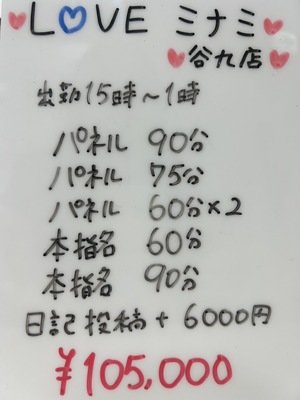 LOVE ミナミ
谷九店
出勤15時～1時
パネル 90分
パネル 75分
パネル 60分×2
本指名 60分
本指名 90分
日記投稿+6000円
¥105,000